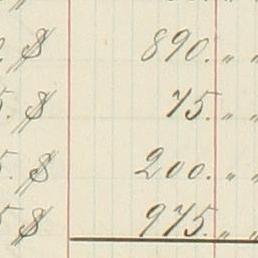 $ 890. " "
5. $ 75. " "
5. $ 200. " "
5 $ 975. " "